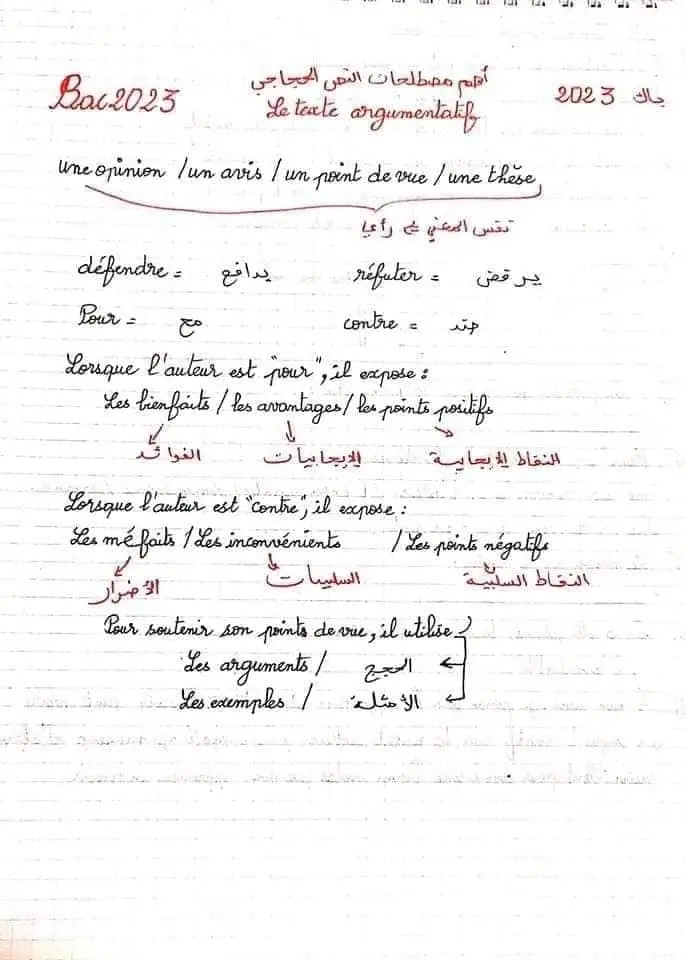 Bac 2023 أهم مصطلحات النص الحجاجي باك 2023
Le texte argumentatif
une opinion / un avis / un point de vue / une thèse
نفس المعنى رأي
défendre = يدافع réfuter = يرفض
Pour = مع contre = ضد
Lorsque l'auteur est "pour", il expose :
Les bienfaits / les avantages / les points positifs
الفوائد الإيجابيات النقاط الإيجابية
Lorsque l'auteur est "contre", il expose :
Les méfaits / Les inconvénients / Les points négatifs
الأضرار السلبيات النقاط السلبية
Pour soutenir son points de vue, il utilise
Les arguments / الحجج
Les exemples / الأمثلة